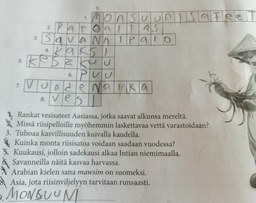 1. MONSUUNISateet
2. PATOaltaS
3. SavaNNIPalo
4. kaksi
5. kesäkuu
6. Puu
7. Vuodenaika
8. Vesi
1. Rankat vesisateet Aasiassa, jotka saavat alkunsa mereltä.
2. Missä riisipelloille myöhemmin laskettavaa vettä varastoidaan?
3. Tuhoaa kasvillisuuden kuivalla kaudella.
4. Kuinka monta riisisatoa voidaan saadaan vuodessa?
5. Kuukausi, jolloin sadekausi alkaa Intian niemimaalla.
6. Savanneilla näitä kasvaa harvassa.
7. Arabian kielen sana mawsim on suomeksi.
8. Asia, jota riisinviljelyyn tarvitaan runsaasti.
MONSUUNI